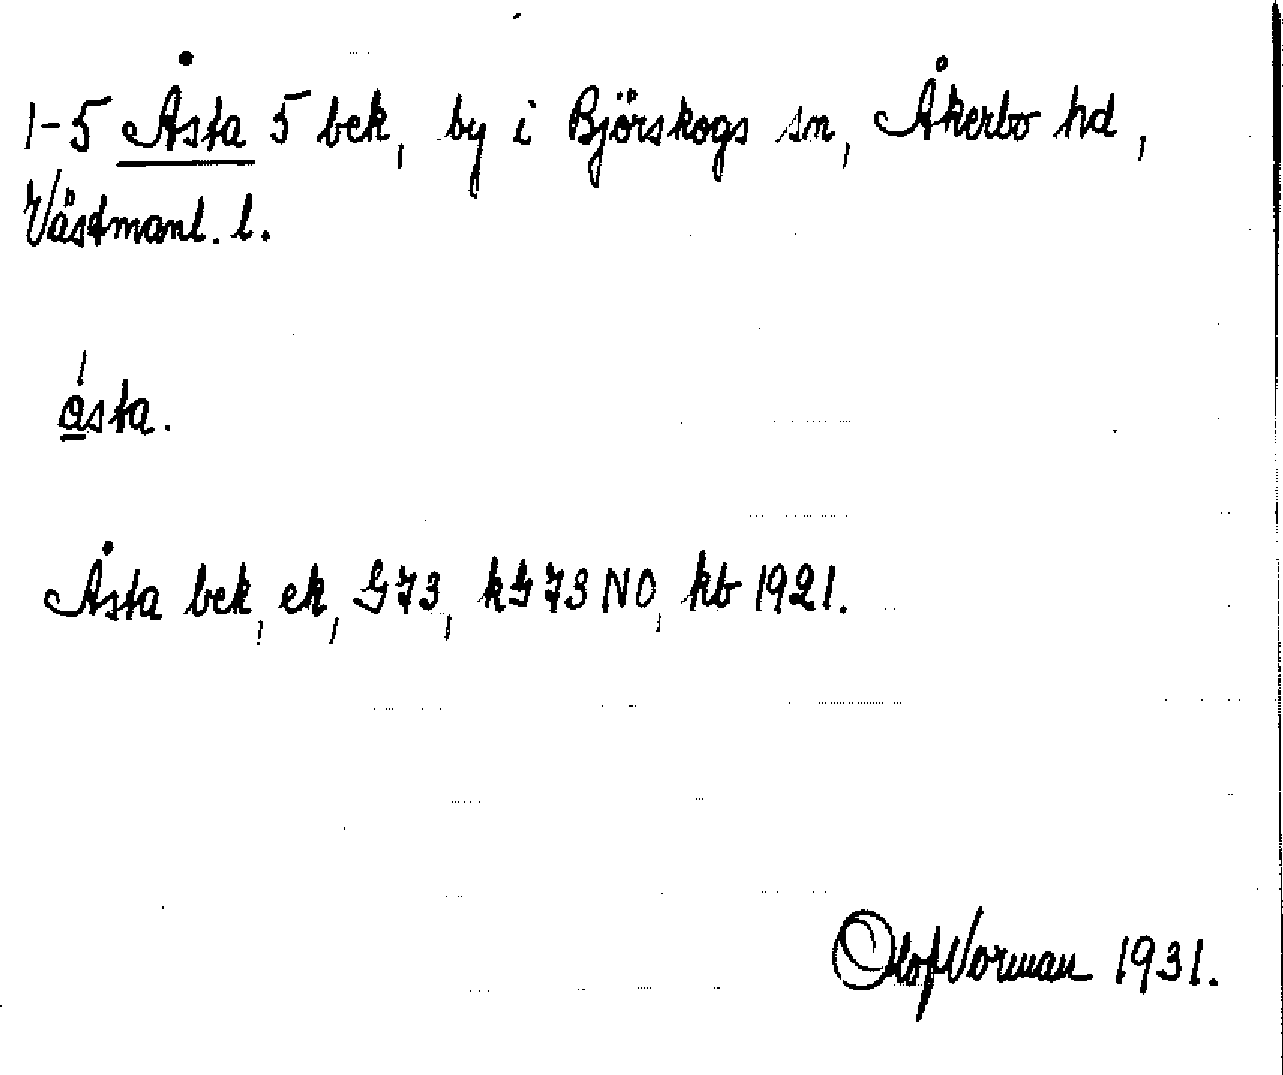 1-5 Åsta 5 bek, by i Björskogs sn, Åkerbo hd,
Västmanl. l.
ásta.
Åsta bek, ek, G73, kG73NO, kb 1921.
Olof Vorman 1931.